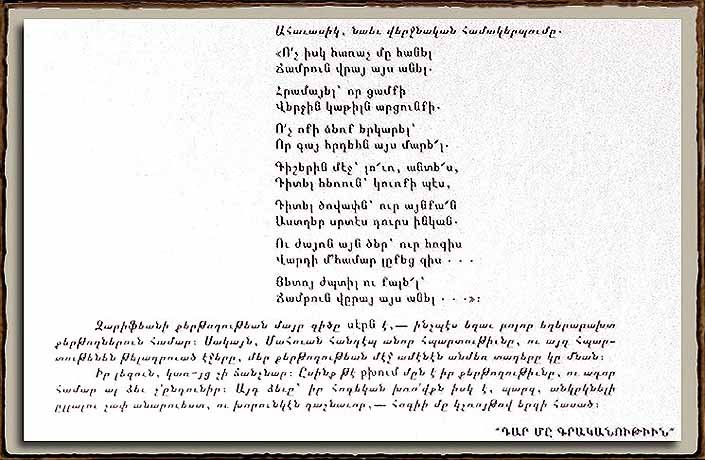 Ահաւասիկ, նաեւ վերջնական համակերպումը.
«Ո՛չ իսկ հառաչ մը հանել
Ճամբուն վրայ այս անել.
Հրամայել՝ որ ցամքի
Վերջին կաթիլն արցունքի.
Ո՛չ ոքի ձեռք երկարել՝
Որ գայ հրդեհն այս մարե՜լ.
Գիշերին մէջ՝ լո՜ւռ, անտե՜ս,
Դիտել հեռուն՝ կուռքի պէս,
Դիտել ծովափն՝ ուր այնքա՜ն
Աստղեր սրտէս դուրս ինկան.
Ու ժայռն այն ծեր՝ ուր հոգիս
Վարդի մ՚համար լքեց զիս . . .
Յետոյ ժպտիլ ու քալե՜լ՝
Ճամբուն վըրայ այս անել . . .»։
Զարիֆեանի քերթողութեան մայր գիծը սէրն է,— ինչպէս եղաւ բոլոր եղերաբախտ
քերթողներուն համար։ Սակայն, Մահուան հանդէպ անոր հպարտութիւնը, ու այդ հպար-
տութենէն թելադրուած էջերը, մեր քերթողութեան մէջ ամէնէն անմեռ տաղերը կը մնան։
Իր լեզուն, կառոյց չի ճանչնար։ Ըսինք թէ բխում մըն է իր քերթողութիւնը, ու ատոր
համար ալ ձեւ չ՚ընդունիր։ Այդ ձեւը՝ իր հոգեկան խռո՛վքն իսկ է, պարզ, անկրկնելի
ըլլալու չափ անարուեստ, ու խորունկէն դաշնաւոր,— հոգիի մը կշռոյթով երգի հասած։
"ԴԱՐ ՄԸ ԳՐԱԿԱՆՈՒԹԻՒՆ"